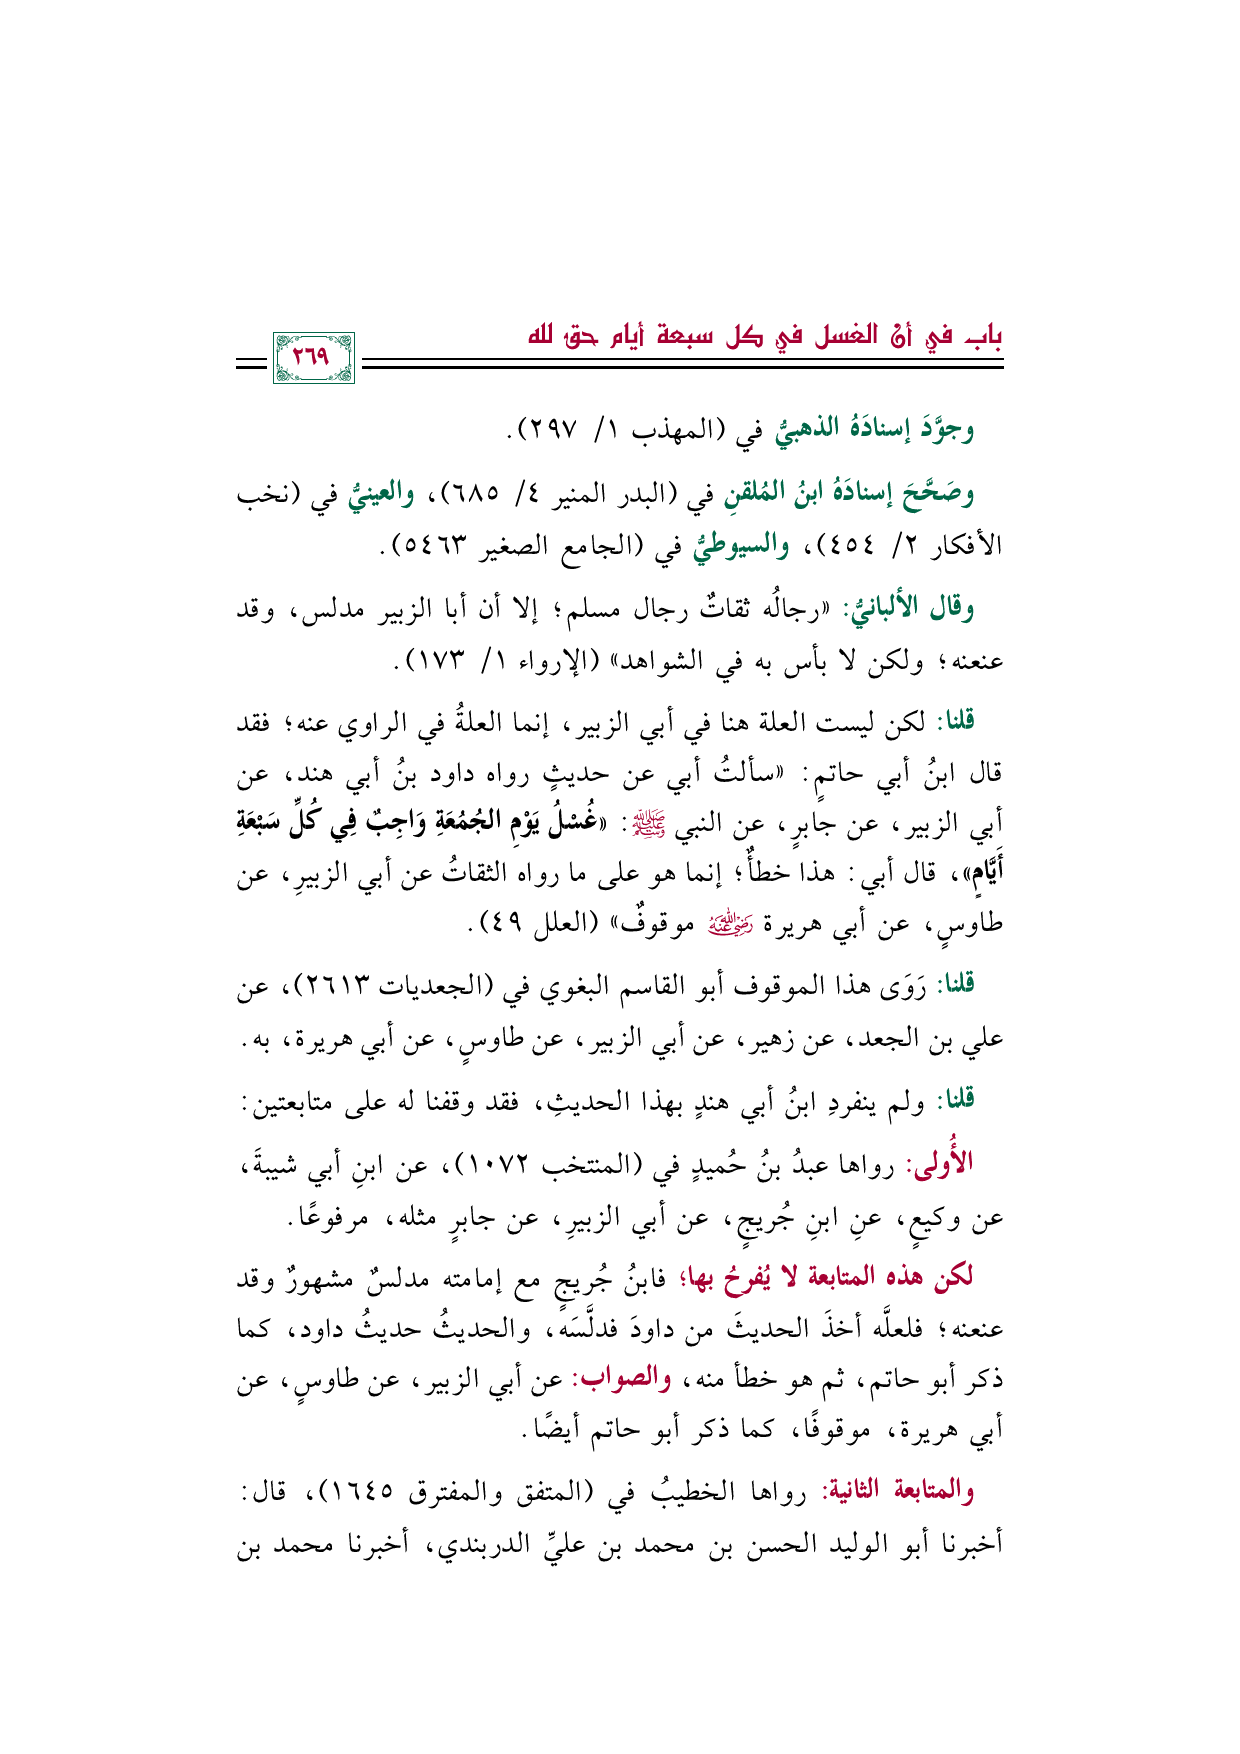 باب في أنّ الغسل في كل سبعة أيام حق لله
٢٦٩
وجوَّدَ إسنادَهُ الذهبيُّ في (المهذب ١/ ٢٩٧).
وصَحَّحَ إسنادَهُ ابنُ المُلقنِ في (البدر المنير ٤/ ٦٨٥)، والعينيُّ في (نخب
الأفكار ٢/ ٤٥٤)، والسيوطيُّ في (الجامع الصغير ٥٤٦٣).
وقال الألبانيُّ: «رجالُه ثقاتٌ رجال مسلم؛ إلا أن أبا الزبير مدلس، وقد
عنعنه؛ ولكن لا بأس به في الشواهد» (الإرواء ١/ ١٧٣).
قلنا: لكن ليست العلة هنا في أبي الزبير، إنما العلةُ في الراوي عنه؛ فقد
قال ابنُ أبي حاتمٍ: «سألتُ أبي عن حديثٍ رواه داود بنُ أبي هند، عن
أبي الزبير، عن جابرٍ، عن النبي ﷺ: «غُسْلُ يَوْمِ الجُمُعَةِ وَاجِبٌ فِي كُلِّ سَبْعَةِ
أَيَّامٍ»، قال أبي: هذا خطأٌ؛ إنما هو على ما رواه الثقاتُ عن أبي الزبيرِ، عن
طاوسٍ، عن أبي هريرة رضي الله عنه موقوفٌ» (العلل ٤٩).
قلنا: رَوَى هذا الموقوف أبو القاسم البغوي في (الجعديات ٢٦١٣)، عن
علي بن الجعد، عن زهير، عن أبي الزبير، عن طاوسٍ، عن أبي هريرة، به.
قلنا: ولم ينفردِ ابنُ أبي هندٍ بهذا الحديثِ، فقد وقفنا له على متابعتين:
الأُولى: رواها عبدُ بنُ حُميدٍ في (المنتخب ١٠٧٢)، عن ابنِ أبي شيبةَ،
عن وكيعٍ، عنِ ابنِ جُريجٍ، عن أبي الزبيرِ، عن جابرٍ مثله، مرفوعًا.
لكن هذه المتابعة لا يُفرحُ بها؛ فابنُ جُريجٍ مع إمامته مدلسٌ مشهورٌ وقد
عنعنه؛ فلعلَّه أخذَ الحديثَ من داودَ فدلَّسَه، والحديثُ حديثُ داود، كما
ذكر أبو حاتم، ثم هو خطأ منه، والصواب: عن أبي الزبير، عن طاوسٍ، عن
أبي هريرة، موقوفًا، كما ذكر أبو حاتم أيضًا.
والمتابعة الثانية: رواها الخطيبُ في (المتفق والمفترق ١٦٤٥)، قال:
أخبرنا أبو الوليد الحسن بن محمد بن عليِّ الدربندي، أخبرنا محمد بن